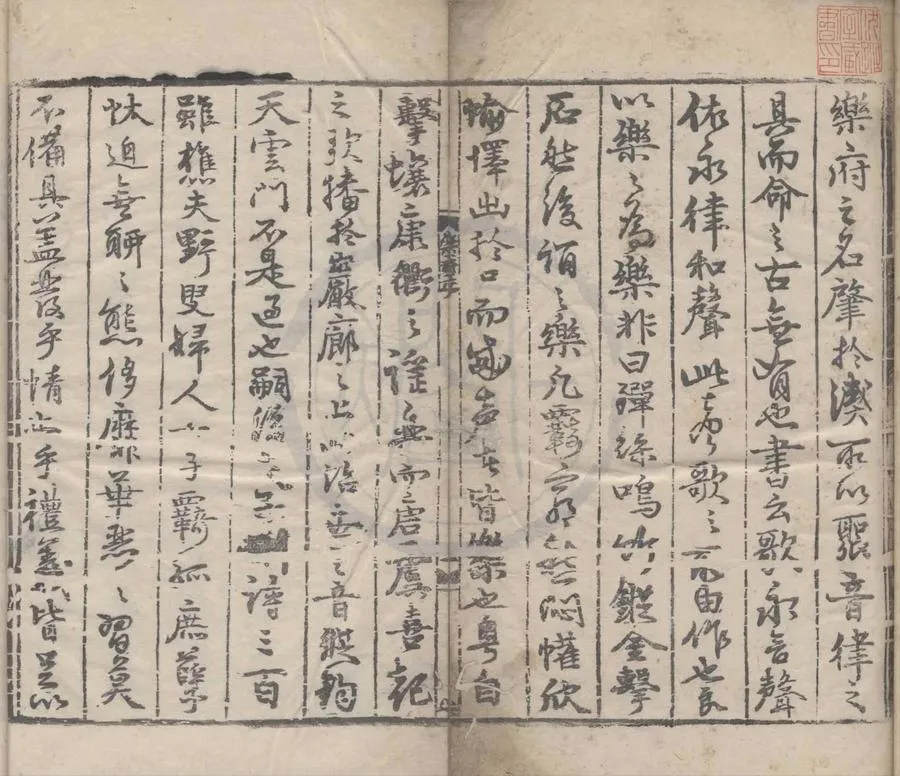 樂府之名肇於漢所以聚音律之
具而命之古無有也書云歌永言聲
依永律和聲此古歌之所由作也良
以樂之為樂非曰彈絲鳴竹鏦金擊
石然後謂之樂凡羈窮愁悶懽欣
愉懌出於口而成聲者皆樂也粵自
擊壤康衢之謠興而唐虞喜起
之歌播於巖廊之上治世之音與鈞
天雲門不是過也嗣後詩三百
雖樵夫野叟婦人女子羈孤庶孽
怵迫無聊之態侈靡華麗之習莫
不備具蓋發乎情止乎禮義皆足以
樂府序